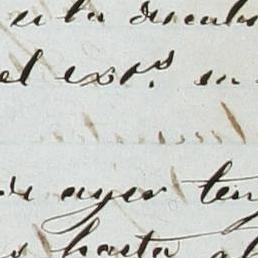 a la
el exp.s en
de ayer ten
hasta